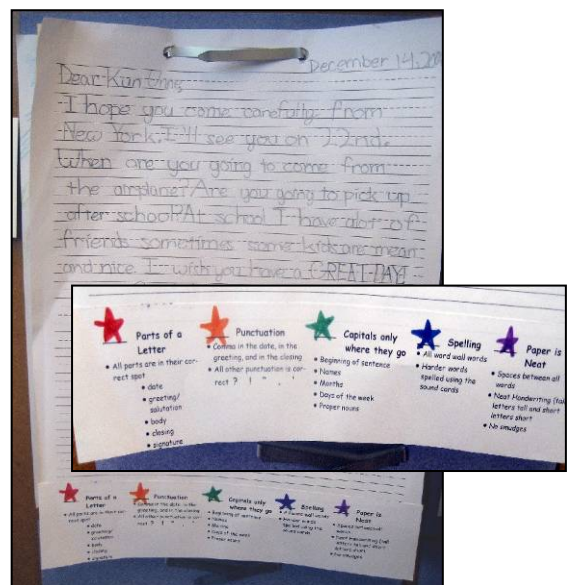 December 14, 20
Dear Kun Omo,
I hope you come carefully from
New York. I'll see you on 22nd.
When are you going to come from
the airplane? Are you going to pick up
after school? At school I have alot of
friends sometimes some kids are mean
and nice. I wish you have a GREAT DAY!
Parts of a
Letter
• All parts are in their cor-
rect spot
• date
• greeting/
salutation
• body
• closing
• signature
Punctuation
• Comma in the date, in the
greeting, and in the closing
• All other punctuation is cor-
rect ? ! " . '
Capitals only
where they go
• Beginning of sentence
• Names
• Months
• Days of the week
• Proper nouns
Spelling
• All word wall words
• Harder words
spelled using the
sound cards
Paper is
Neat
• Spaces between all
words
• Neat Handwriting (tall
letters tall and short
letters short
• No smudges
Parts of a
Letter
• All parts are in their cor-
rect spot
• date
• greeting/
salutation
• body
• closing
• signature
Punctuation
• Comma in the date, in the
greeting, and in the closing
• All other punctuation is cor-
rect ? ! " . '
Capitals only
where they go
• Beginning of sentence
• Names
• Months
• Days of the week
• Proper nouns
Spelling
• All word wall words
• Harder words
spelled using the
sound cards
Paper is
Neat
• Spaces between all
words
• Neat Handwriting (tall
letters tall and short
letters short
• No smudges